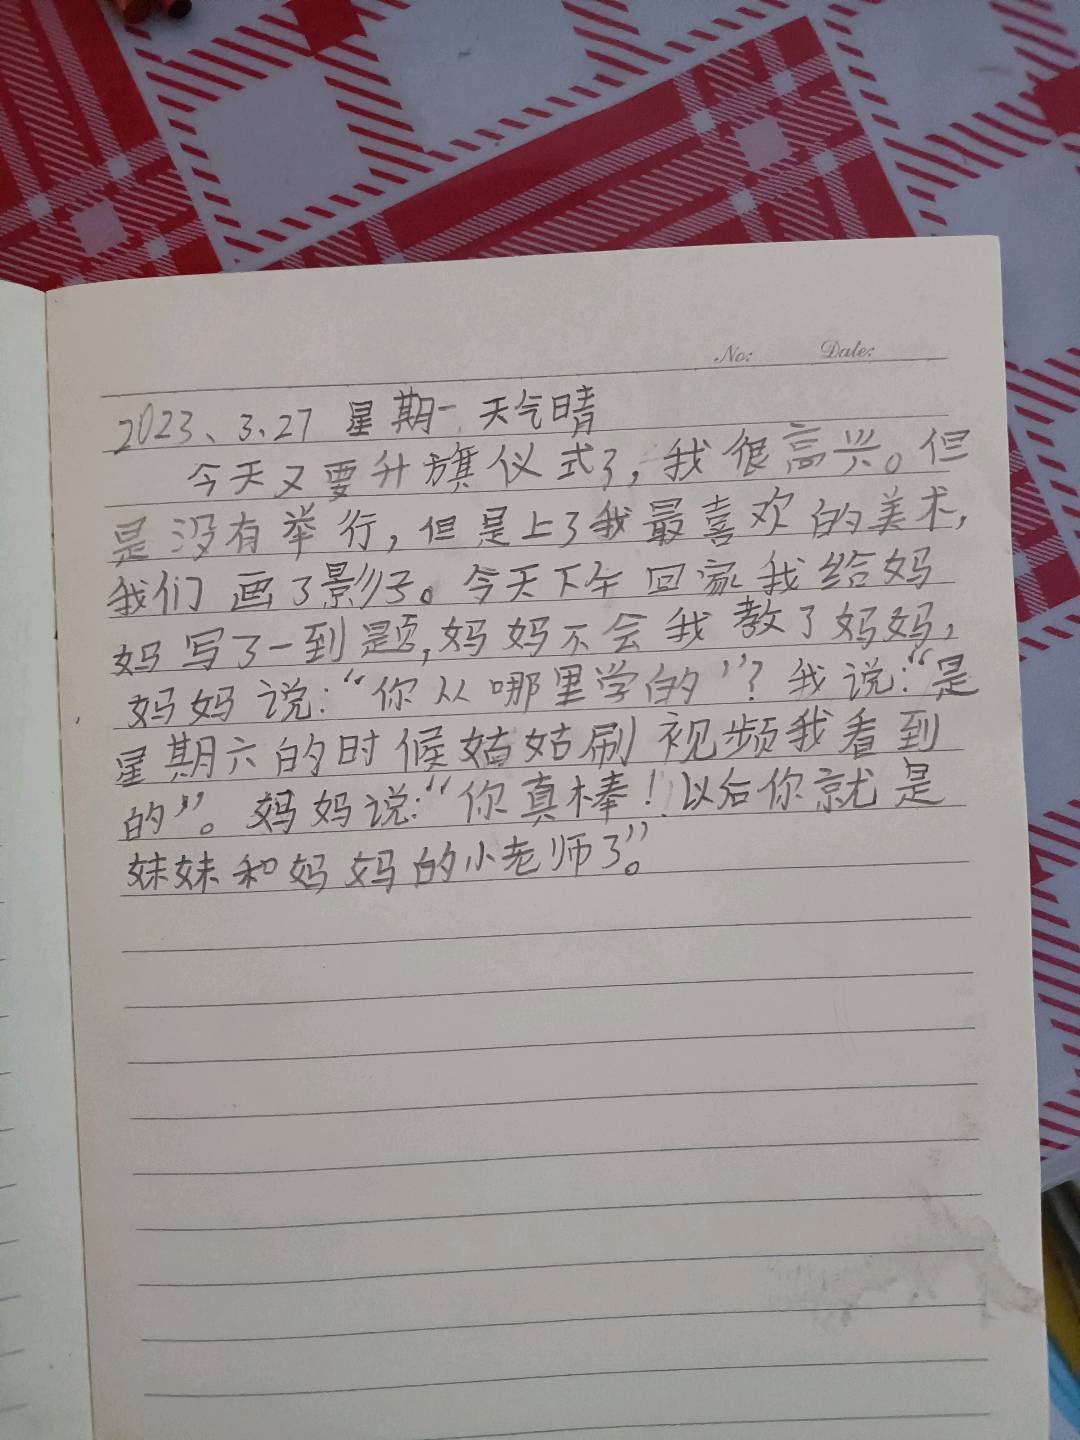 No: Date:
2023、3.27 星期一 天气晴
今天又要升旗仪式了,我很高兴。但
是没有举行,但是上了我最喜欢的美术,
我们画了影子。今天下午回家我给妈
妈写了一到题,妈妈不会我教了妈妈,
妈妈说:“你从哪里学的”?我说:“是
星期六的时候姑姑刷视频我看到
的”。妈妈说:“你真棒!以后你就是
妹妹和妈妈的小老师了”。